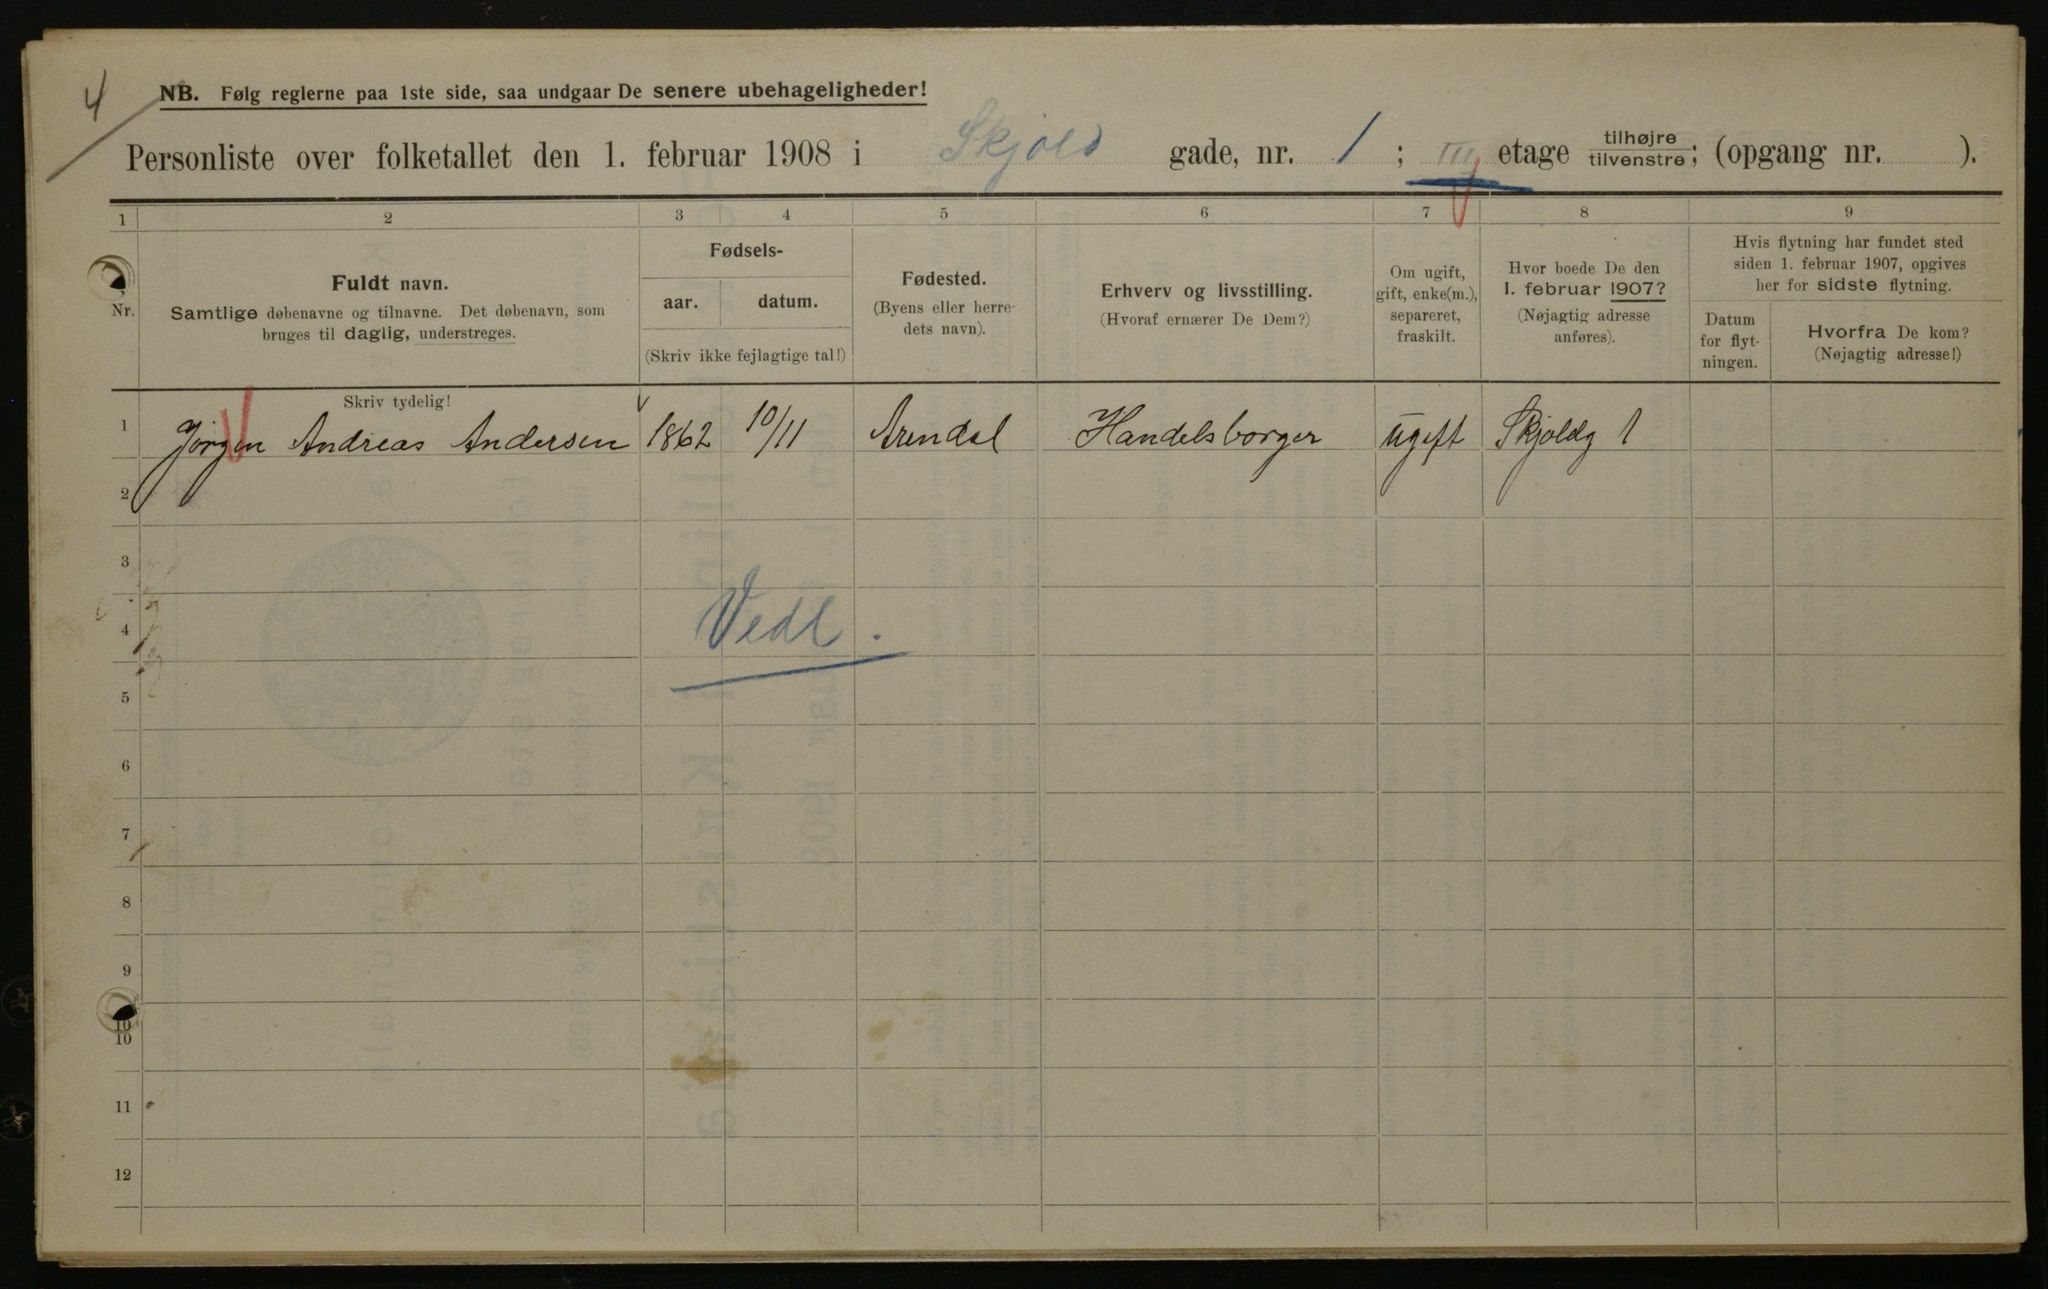 4
NB. Følg reglerne paa 1ste side, saa undgaar De senere ubehageligheder!
Personliste over folketallet den 1. februar 1908 i Skjold gade, nr. 1 ; III etage tilhøjre tilvenstre; (opgang nr. ).
1 2 3 4 5 6 7 8 9
Nr.
Fuldt navn.
Samtlige døbenavne og tilnavne. Det døbenavn, som
bruges til daglig, understreges.
Fødsels-
aar. datum.
(Skriv ikke fejlagtige tal!)
Fødested.
(Byens eller herre-
dets navn).
Erhverv og livsstilling.
(Hvoraf ernærer De Dem?)
Om ugift,
gift, enke(m.),
separeret,
fraskilt.
Hvor boede De den
1. februar 1907?
(Nøjagtig adresse
anføres).
Hvis flytning har fundet sted
siden 1. februar 1907, opgives
her for sidste flytning.
Datum
for flyt-
ningen.
Hvorfra De kom?
(Nøjagtig adresse!)
Skriv tydelig!
1 Jørgen Andreas Andersen 1862 10/11 Arendal Handelsborger ugift Skjoldg 1
2
3
Vedl.
4
5
6
7
8
9
10
10
11
12